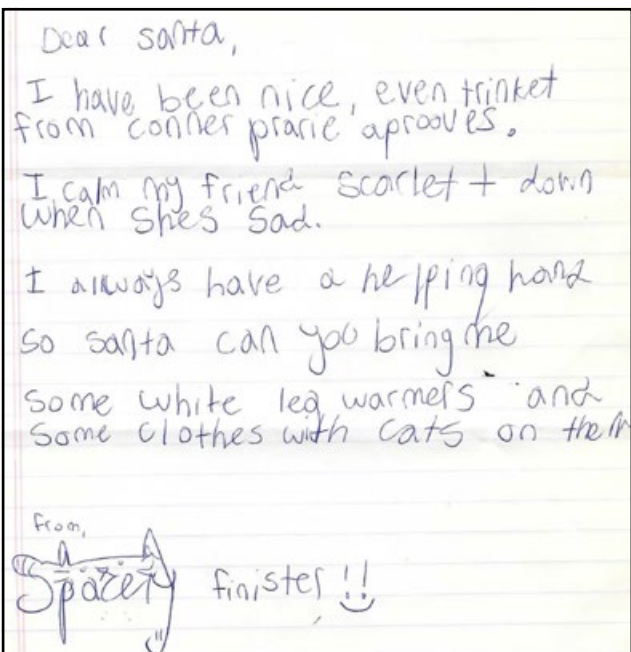 Dear santa,
I have been nice, even trinket
from conner prarie aprooves.
I calm my friend scarlett down
when shes sad.
I allways have a helping hand
so santa can you bring me
some white leg warmers and
some clothes with cats on them
from,
finister !!